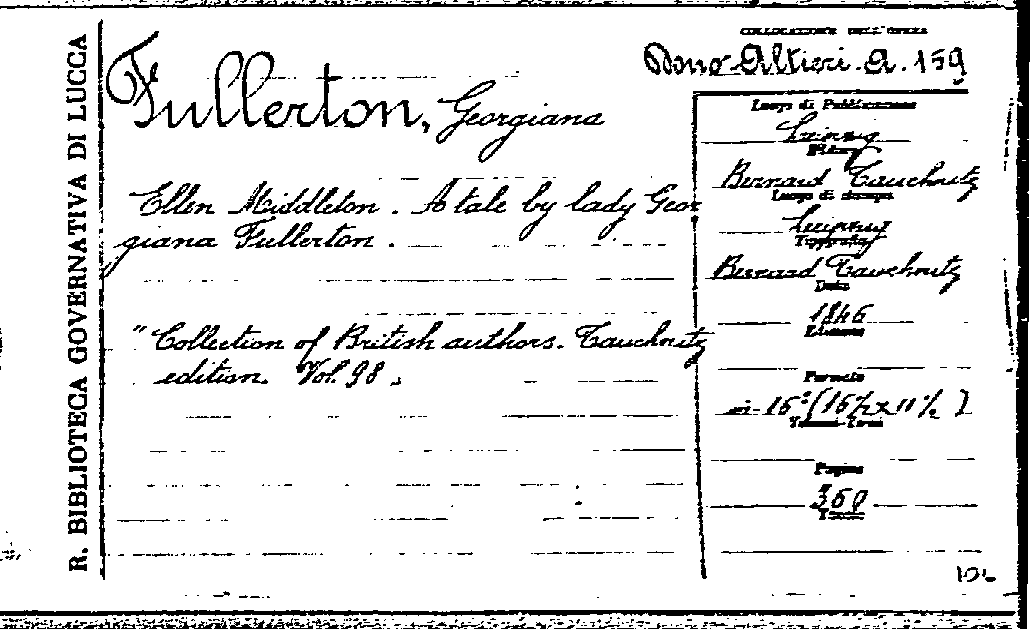 R. BIBLIOTECA GOVERNATIVA DI LUCCA
COLLOCAZIONE DELL'OPERA
Dono Altieri. A. 159
Fullerton, Georgiana
Ellen Middleton. A tale by lady Geor
giana Fullerton.
"Collection of British authors. Tauchnitz
edition. Vol. 98.
Luogo di Pubblicazione
Leipzig
Bernard Tauchnitz
Luogo di stampa
Leipzig
Tipografia
Bernard Tauchnitz
Data
1846
Edizione
Formato
in-16° (16½ x 11½)
Pagine
360
106